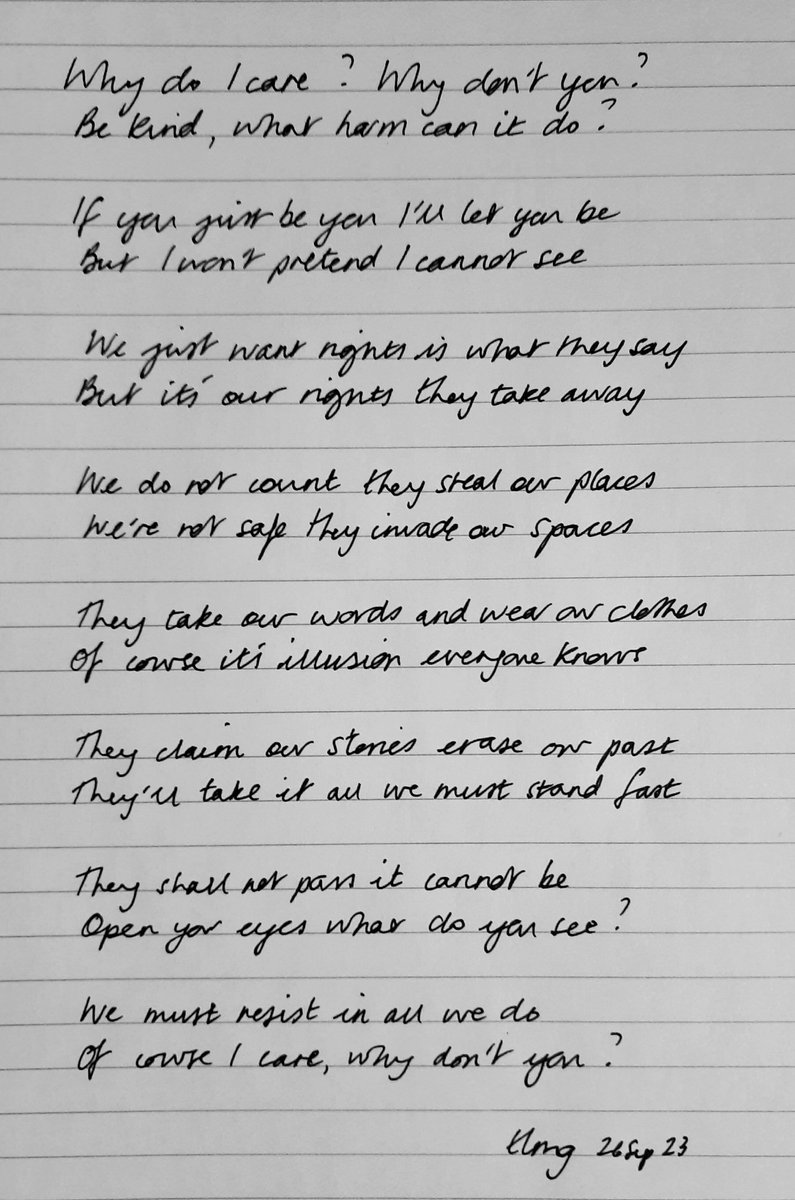 Why do I care? Why don't you?
Be kind, what harm can it do?
If you just be you I'll let you be
But I won't pretend I cannot see
We just want rights is what they say
But it's our rights they take away
We do not count they steal our places
We're not safe they invade our spaces
They take our words and wear our clothes
Of course it's illusion everyone knows
They claim our stories erase our past
They'll take it all we must stand fast
They shall not pass it cannot be
Open your eyes what do you see?
We must resist in all we do
Of course I care, why don't you?
26 Sep 23